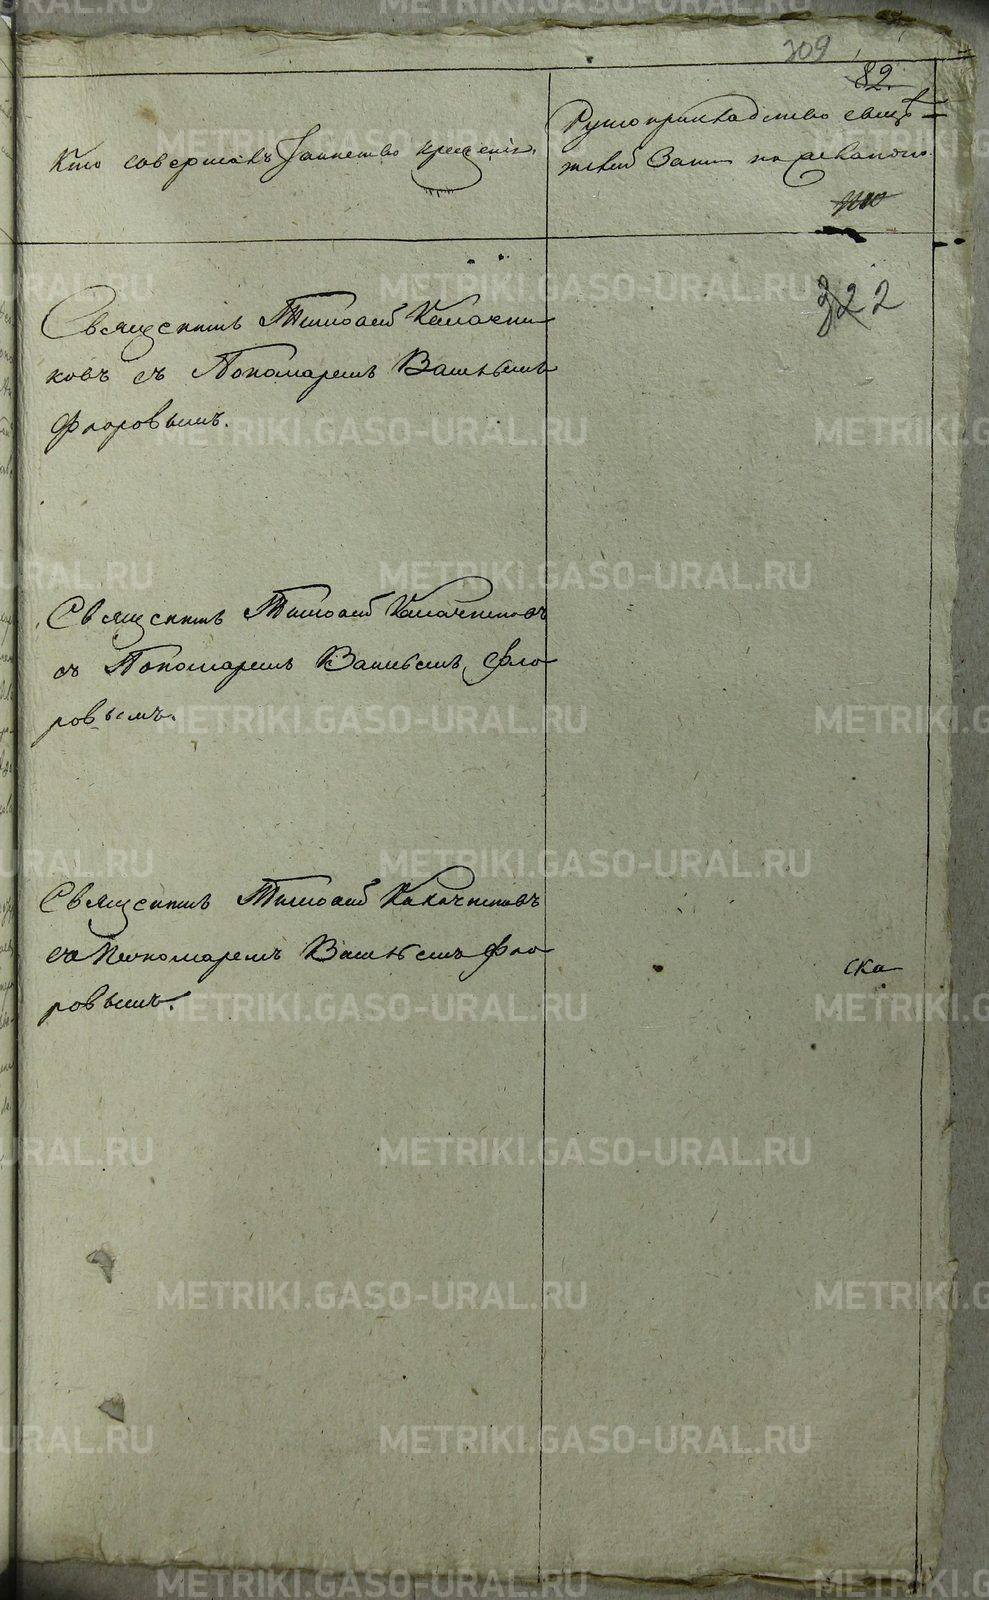 309
82.
Кто совершалъ Таинство крещенія.
Рукоприкладство свидѣ=
телей Записи по желанію
322
Священникъ Тимоѳей Калачни
ковъ съ Пономаремъ Васильемъ
Флоровымъ.
Священникъ Тимоѳей Калачниковъ
съ Пономаремъ Васильемъ Фло
ровымъ.
Священникъ Тимоѳей Калачниковъ
съ Пономаремъ Васильемъ Фло
ровымъ.
ска
METRIKI.GASO-URAL.RU